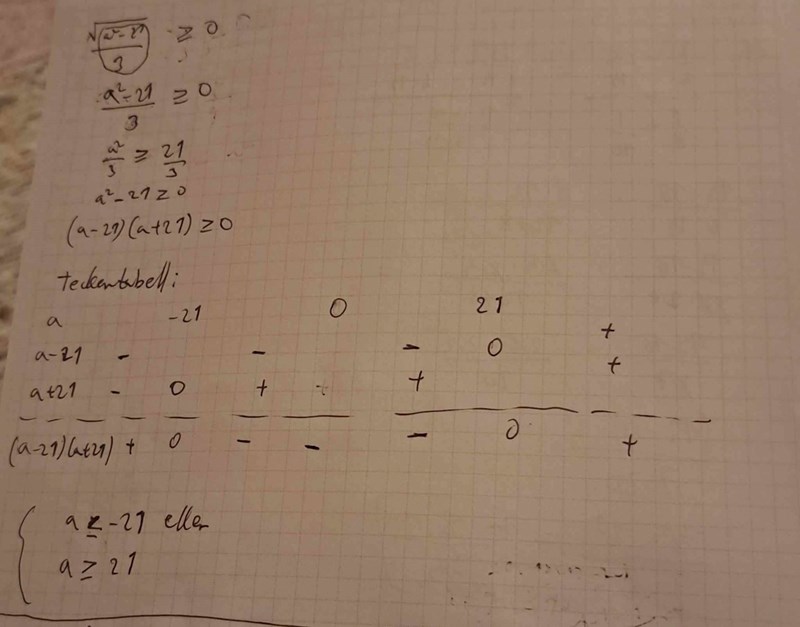 √(a²-21)/3 ≥ 0
(a²-21)/3 ≥ 0
a²/3 ≥ 21/3
a²-21 ≥ 0
(a-21)(a+21) ≥ 0
Teckentabell:
a -21 0 21
a-21 - - - 0 +
a+21 - 0 + + + +
(a-21)(a+21) + 0 - - - 0 +
a ≤ -21 eller
a ≥ 21